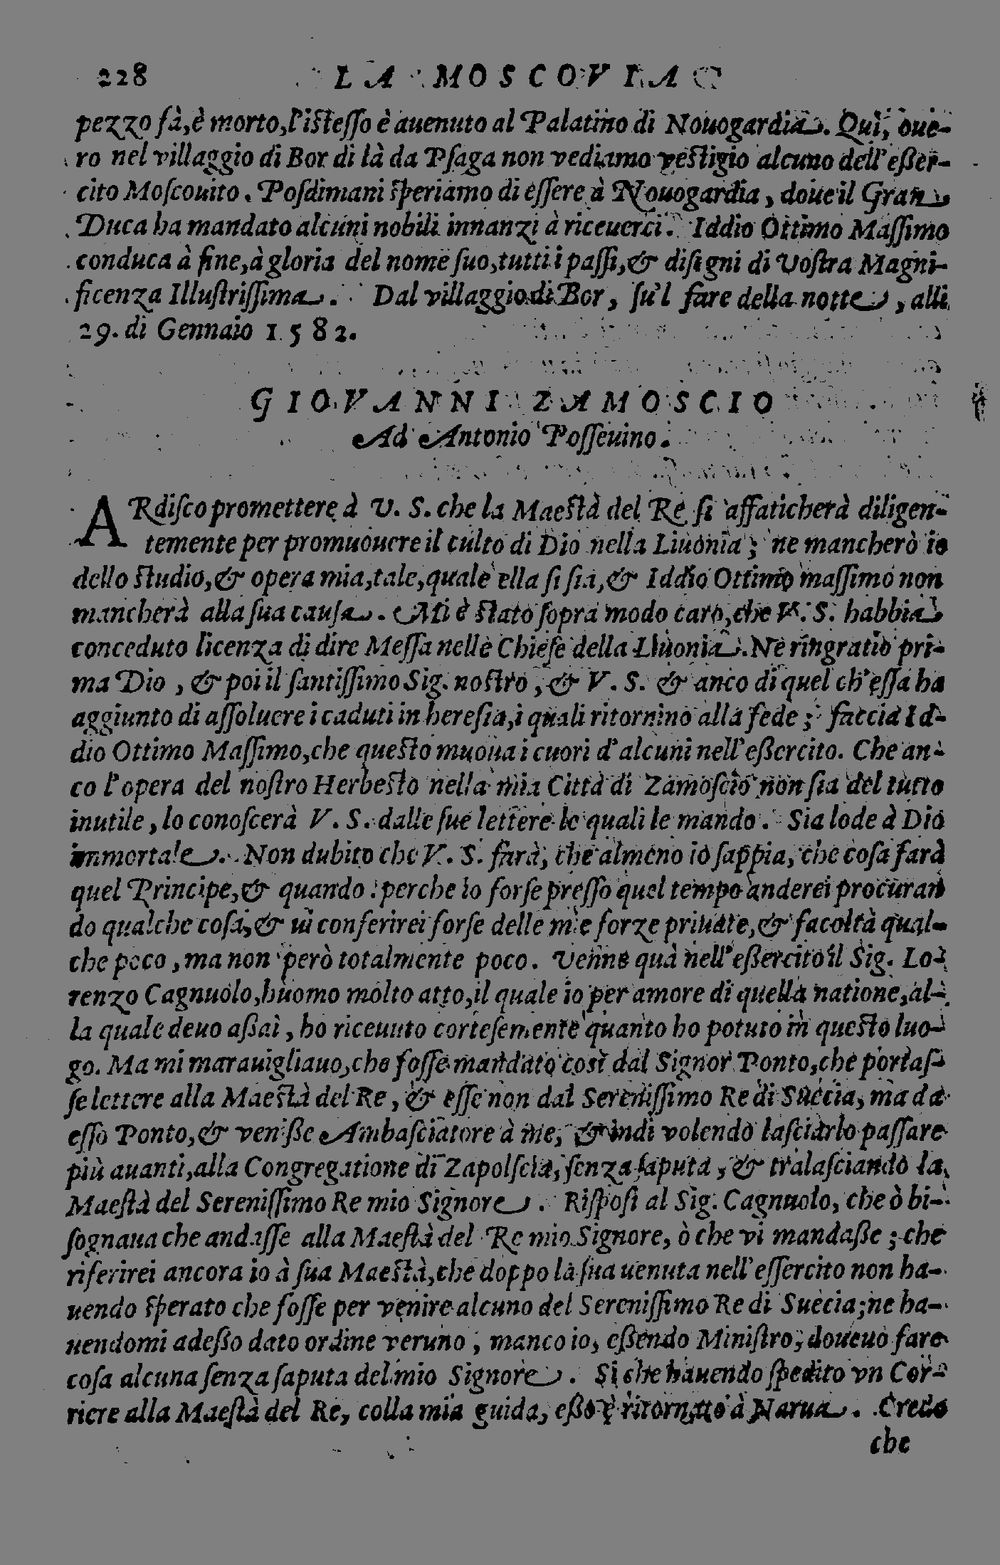 228 LA MOSCOVIA
pezzo fà, è morto, l'istesso è auenuto al Palatino di Nouogardia. Quì, oue-
ro nel villaggio di Bor di là da Psaga non vediamo vestigio alcuno dell'esser-
cito Moscouito. Posdimani speriamo di essere à Nouogardia, doue il Gran
Duca ha mandato alcuni nobili innanzi à riceuerci. Iddio Ottimo Massimo
conduca à fine, à gloria del nome suo, tutti i passi, & disigni di Vostra Magni-
ficenza Illustrissima. Dal villaggio di Bor, su'l fare della notte, alli
29. di Gennaio 1582.
GIOVANNI ZAMOSCIO
Ad Antonio Posseuino.
ARdisco promettere à V. S. che la Maestà del Re si affaticherà diligen-
temente per promuouere il culto di Dio nella Liuonia; ne mancherò io
dello studio, & opera mia, tale, quale ella si sia, & Iddio Ottimo massimo non
mancherà alla sua causa. Mi è stato sopra modo caro, che V. S. habbia
conceduto licenza di dire Messa nelle Chiese della Liuonia. Ne ringratio pri-
ma Dio, & poi il santissimo Sig. nostro, & V. S. & anco di quel ch'essa ha
aggiunto di assoluere i caduti in heresia, i quali ritornino alla fede; faccia Id-
dio Ottimo Massimo, che questo muoua i cuori d'alcuni nell'essercito. Che an-
co l'opera del nostro Herbesto nella mia Città di Zamoscio non sia del tutto
inutile, lo conoscerà V. S. dalle sue lettere le quali le mando. Sia lode à Dio
immortale. Non dubito che V. S. farà, che almeno io sappia, che cosa farà
quel Principe, & quando: perche io forse presso quel tempo anderei procuran
do qualche cosa, & ui conferirei forse delle mie forze priuate, & facoltà qual-
che poco, ma non però totalmente poco. Venne quà nell'essercito il Sig. Lo-
renzo Cagnuolo, huomo molto atto, il quale io per amore di quella natione, al-
la quale deuo assai, ho riceuuto cortesemente quanto ho potuto in questo luo-
go. Ma mi marauigliauo, che fosse mandato così dal Signor Ponto, che portas-
se lettere alla Maestà del Re, & esse non dal Serenissimo Re di Suecia, ma da
esso Ponto, & venisse Ambasciatore à me, & indi volendo lasciarlo passare
più auanti, alla Congregatione di Zapolscia, senza saputa, & tralasciando la
Maestà del Serenissimo Re mio Signore. Risposi al Sig. Cagnuolo, che ò bi-
sognaua che andasse alla Maestà del Re mio Signore, ò che vi mandasse; che
riferirei ancora io à sua Maestà, che doppo la sua uenuta nell'essercito non ha-
uendo sperato che fosse per venire alcuno del Serenissimo Re di Suecia; ne ha-
uendomi adesso dato ordine veruno, manco io, essendo Ministro, doueuo fare
cosa alcuna senza saputa del mio Signore. Si che hauendo spedito vn Cor-
riere alla Maestà del Re, colla mia guida, esso è ritornato à Narua. Credo
che